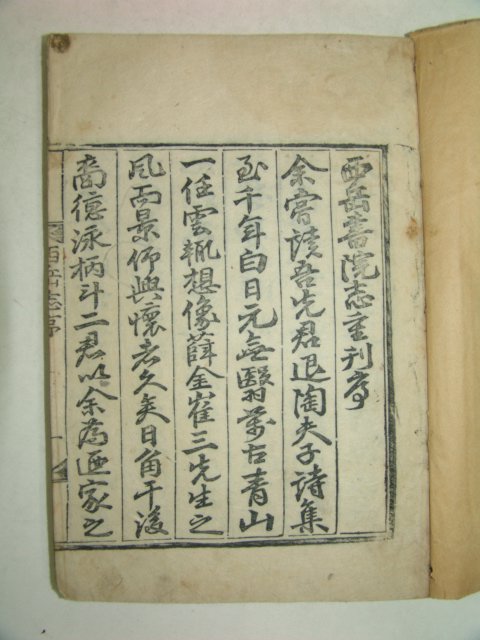 西岳書院志重刊序
余嘗讀吾先君退陶夫子詩集
至千年白日元無翳萬古青山
一任雲輒想像薛金崔三先生之
風而景仰興懷者久矣日角干後
裔德泳柄斗二君以余爲
家之
西岳志序
一